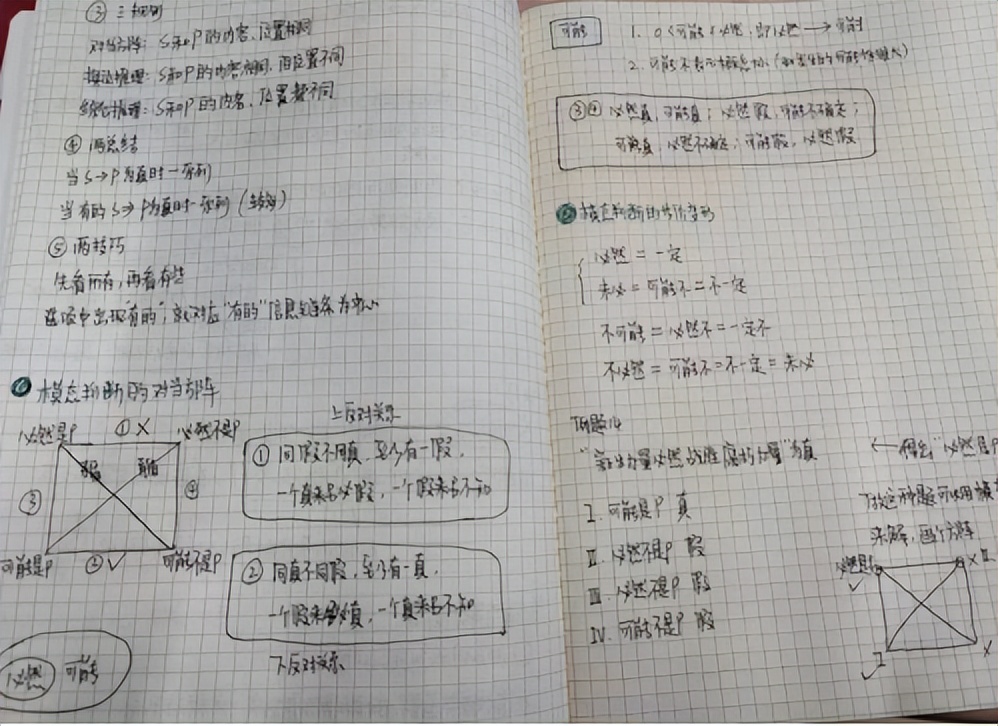 ③ 三规则
对当方阵：S和P的内容、位置相同
换法推理：S和P的内容相同，而位置不同
S和P的内容、位置都不同
④ 两总结
当S→P为真时一系列
当有的S→P为真时一系列
⑤ 两技巧
先看所有，再看有些
选项中出现"有的"，就对应"有的"信息
⑥ 模态判断的对当方阵
必然是P ①× 必然不是P
矛盾 矛盾
③ ④
可能是P ②√ 可能不是P
必然 可能
上反对关系
① 同假不同真，至少有一假，
一个真来另必假，一个假来另不知
② 同真不同假，至少有一真，
一个假来另必真，一个真来另不知
下反对关系
可能
1. 0<可能<必然，即必然→可能
2. 可能不表示概率大小
③④ 必然真，可能真；必然假，可能不确定；
可能真，必然不确定；可能假，必然假
模态判断的等价变形
必然=一定
未必=可能不=不一定
不可能=必然不=一定不
不必然=可能不=不一定=未必
例题14
"力量必然战胜腐朽力量"为真
←得出"必然是P
I. 可能是P 真
II. 必然不是P 假
III. 必然不是P 假
IV. 可能不是P 假
故这种题可以用
来解，画个方阵
必然是P
√ × II
I ×
√